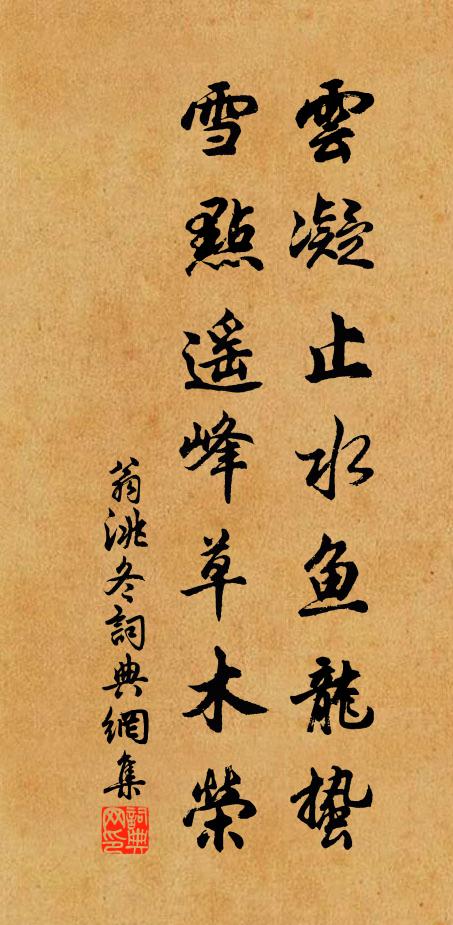 雲凝止水鱼龍蟄
雪點遥峰草木榮
翁洮冬詞典網集
詞典网印